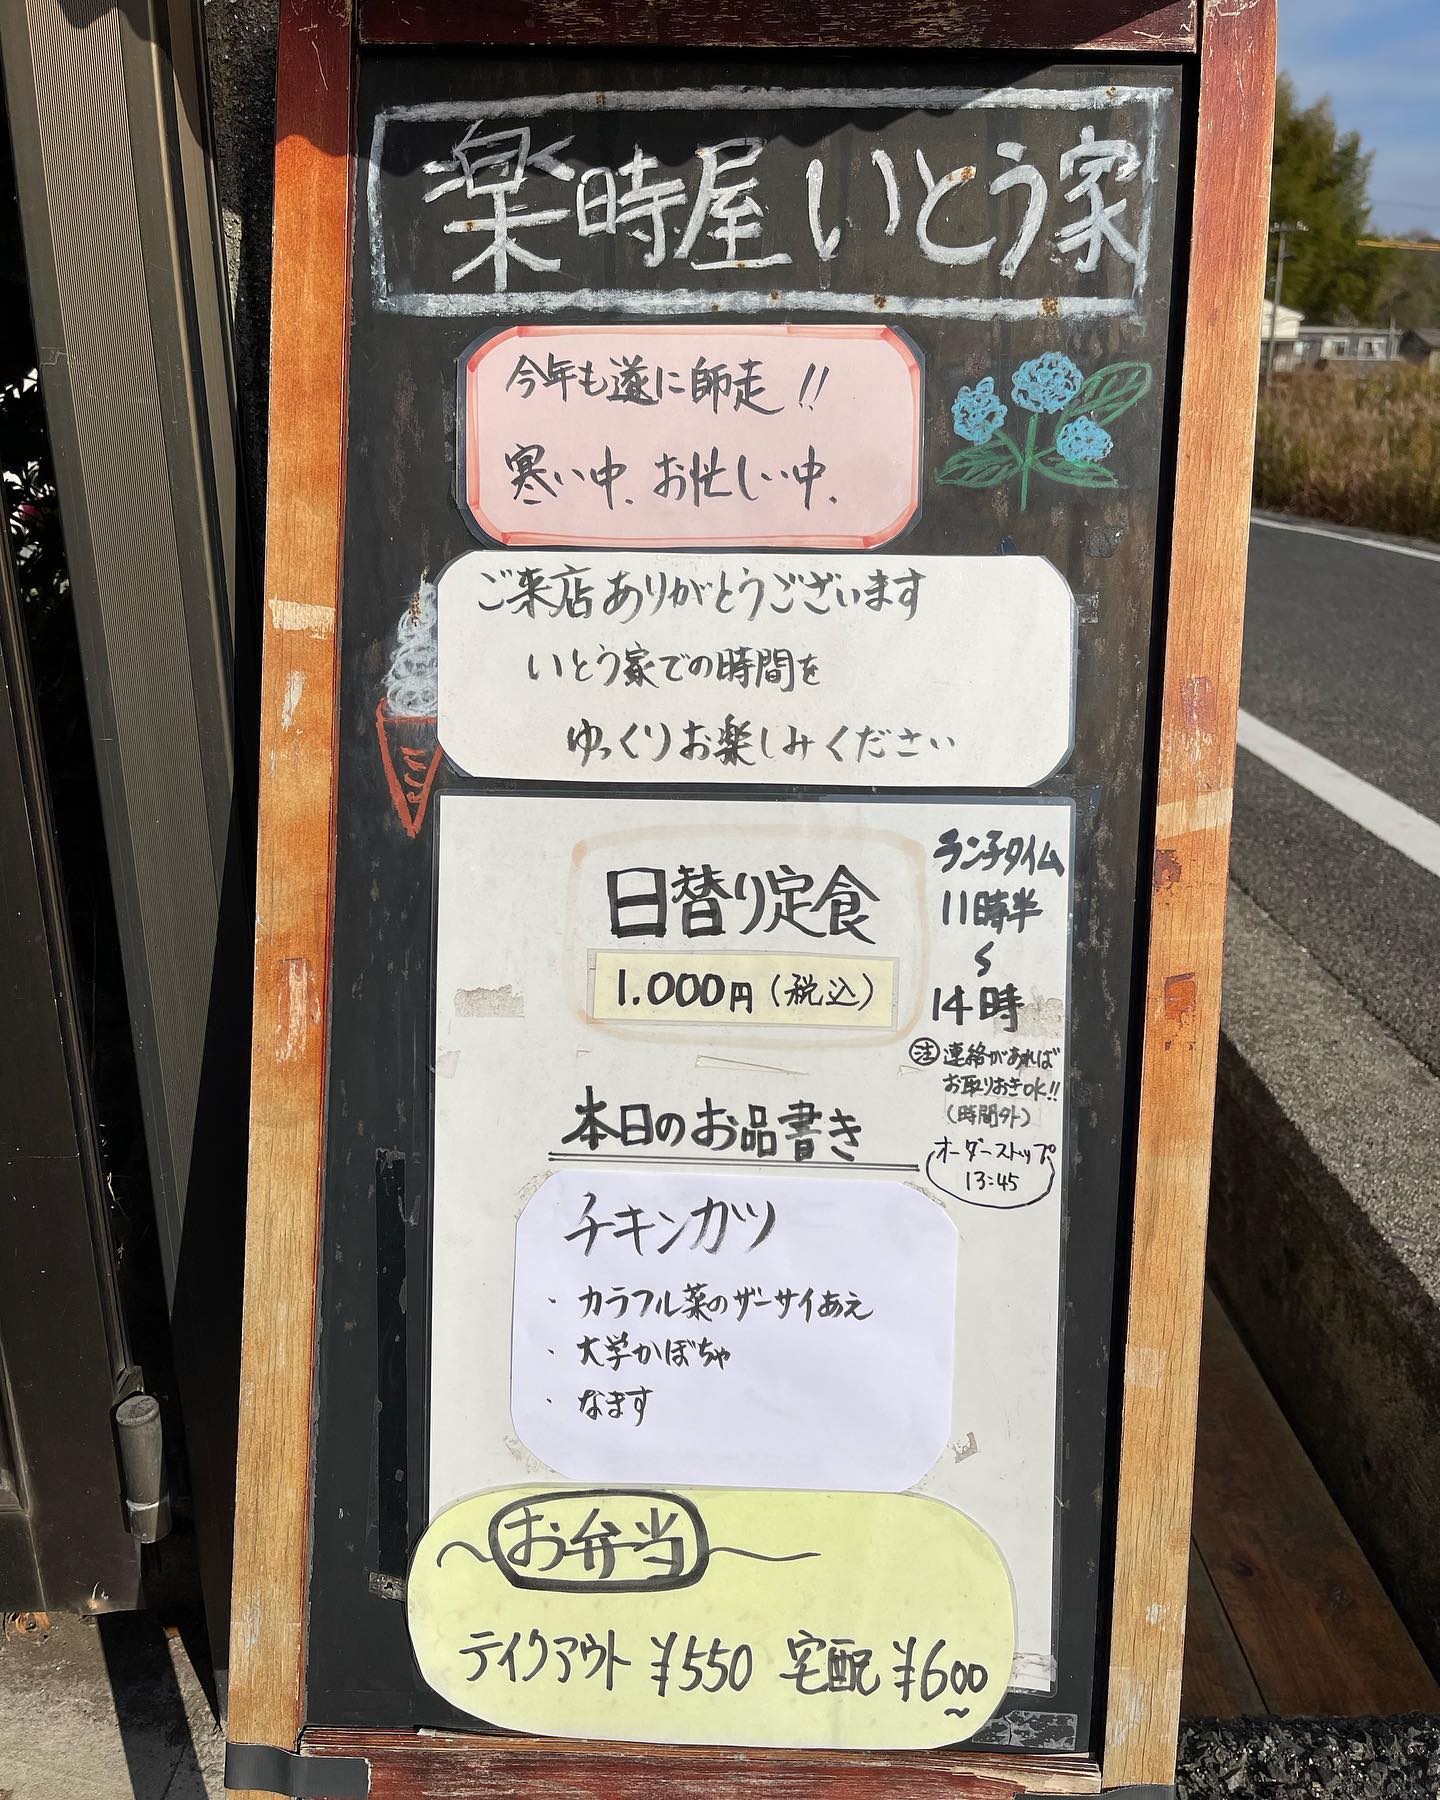 楽時屋 いとう家
今年も遂に師走!!
寒い中、お忙しい中、
ご来店ありがとうございます
いとう家での時間を
ゆっくりお楽しみください
日替り定食
1.000円(税込)
ランチタイム
11時半
〜
14時
㊟連絡があれば
お取りおきOK!!
(時間外)
オーダーストップ
13:45
本日のお品書き
チキンカツ
・カラフル菜のザーサイあえ
・大学かぼちゃ
・なます
お弁当
テイクアウト ¥550 宅配 ¥600〜